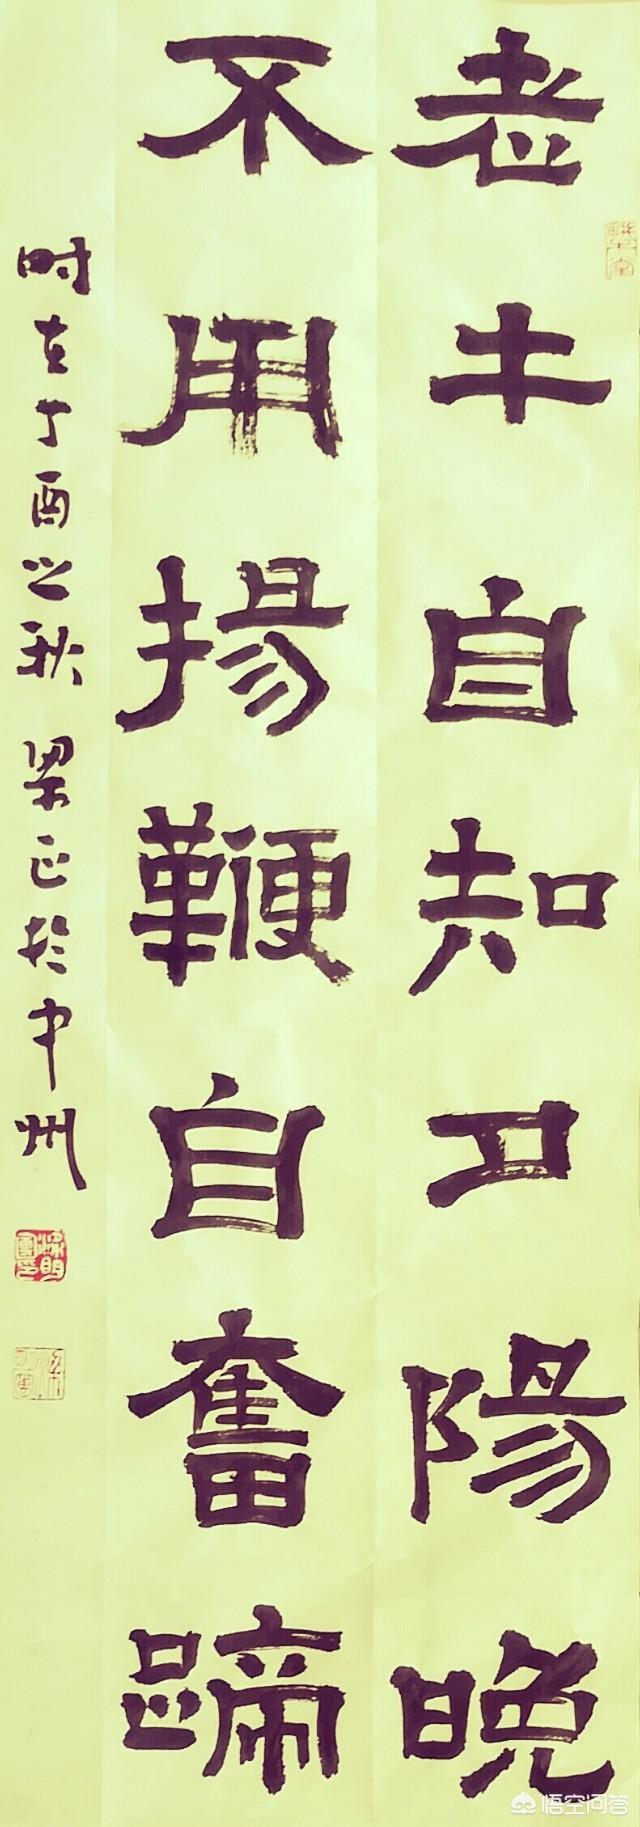 老牛自知夕陽晚
不用揚鞭自奮蹄
时在丁酉之秋 梁正於中州
悟空问答